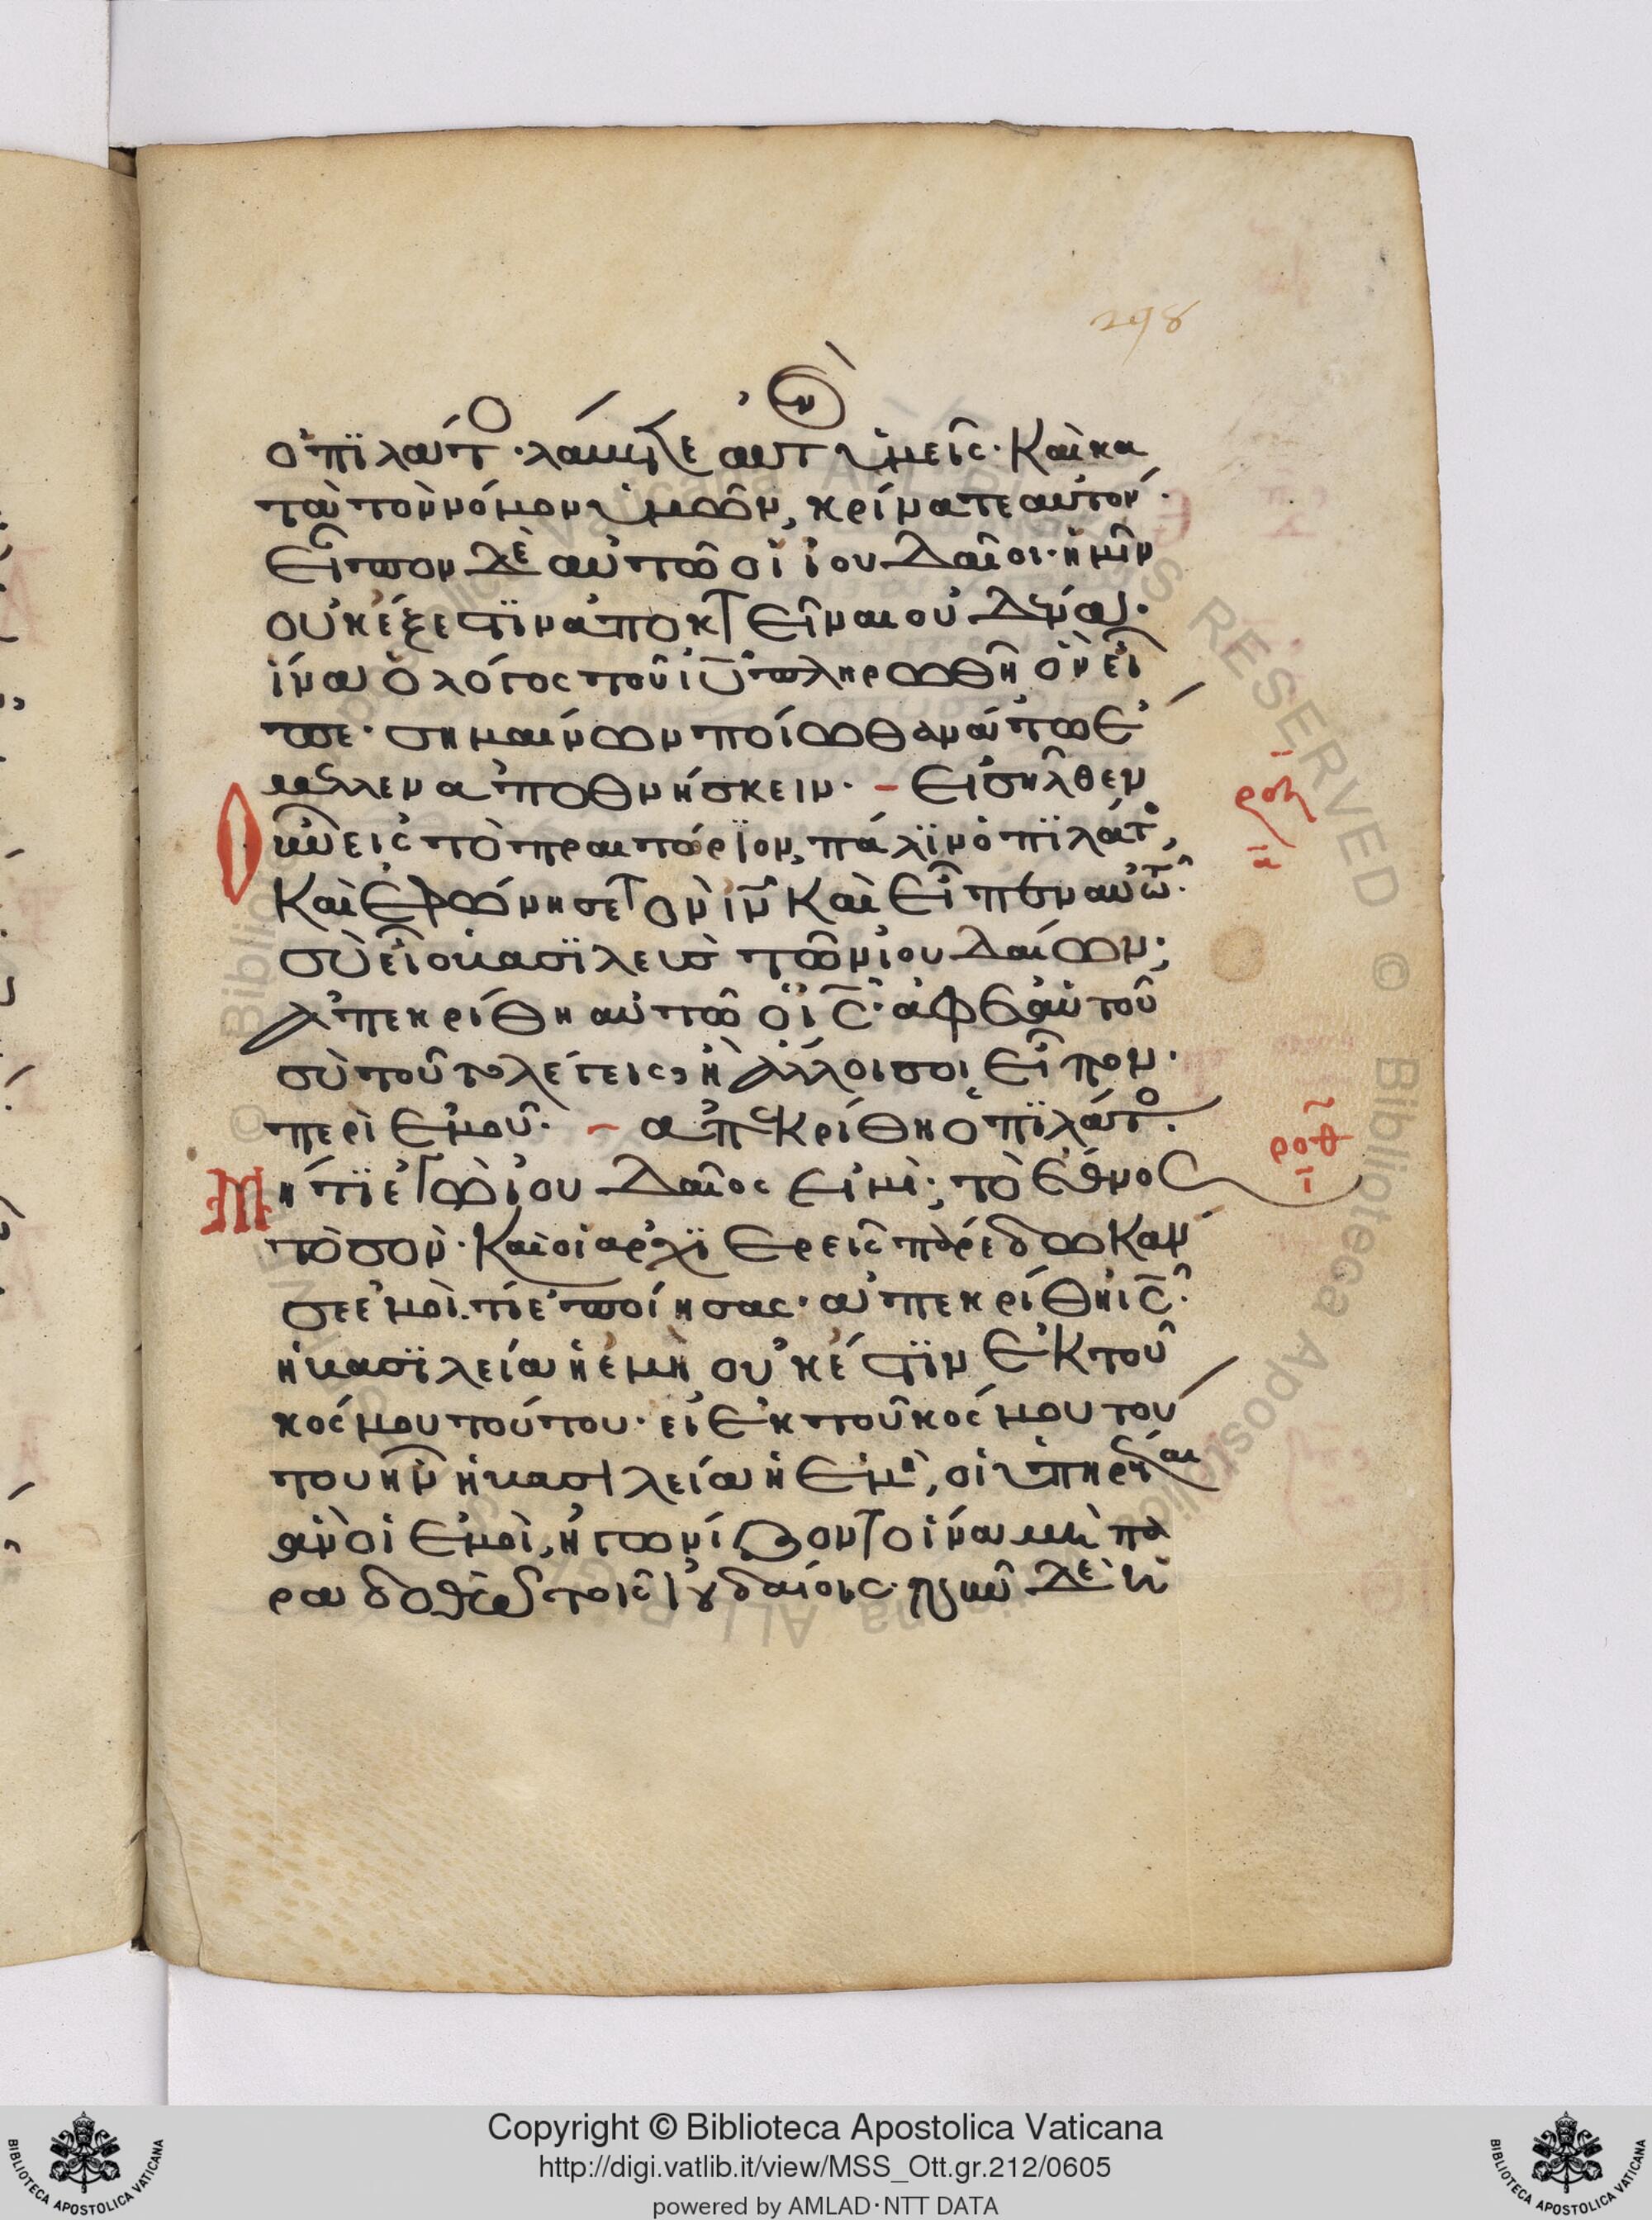 298
ὁ πϊλάτος· λάβετε αὐτὸν ὑμεῖς· Καὶ κα
τὰ τὸν νόμον ὑμῶν, κρίνατε αὐτόν·
Εἶπον δὲ αὐτῶ οἱ ἰουδαῖοι· ἡμῖν
οὐκ έξεστϊν ἀποκτεῖναι οὐδένα·
ἵνα ὁ λόγος τοῦ ἰυ πληρωθῆ ὃν εἶ
πε· σημαίνων ποίω θανάτω έ
μελλεν ἀποθνήσκειν· – Εἰσῆλθεν
οὖν εἰς τὸ πραιτόρϊον, πάλϊν ὁ πϊλάτος,
Καὶ ἐφώνησε τὸν ἰν Καὶ Εἶπεν αὐτῶ·
σὺ εἶ ὁ βασϊλεὺς τῶν ἰουδαίων;
Ἀπεκρίθη αὐτῶ ὁ ἰς· ἀφ ἑαυτοῦ
σὺ τοῦτο λέγεις, ἢ ἄλλοι σοι εἶπον·
περὶ ἐμοῦ· – ἀπεκρίθη ὁ πϊλάτος·
Μήτϊ ἐγὼ ἰουδαῖος εἰμὶ; τὸ ἔθνος
τὸ σὸν· Καὶ οἱ ἀρχϊερεῖς παρέδωκαν
σε ἐμοὶ. τί ἐποίησας· ἀπεκρίθη ἰς·
ἡ βασϊλεία ἡ ἐμὴ οὐκ έστϊν ἐκ τοῦ
κόσμου τούτου· εἰ ἐκ τοῦ κόσμου τού
του ἦν ἡ βασιλεία ἡ ἐμὴ, οἱ ὑπηρέται
ἂν οἱ ἐμοὶ, ἠγωνίζοντο ἵνα μὴ πα
ραδοθῶ τοῖς Ἰουδαίοις· νῦν δὲ ἡ
ροη
α
ροθ
ι
Copyright © Biblioteca Apostolica Vaticana
http://digi.vatlib.it/view/MSS_Ott.gr.212/0605
powered by AMLAD·NTT DATA
BIBLIOTECA APOSTOLICA VATICANA
BIBLIOTECA APOSTOLICA VATICANA